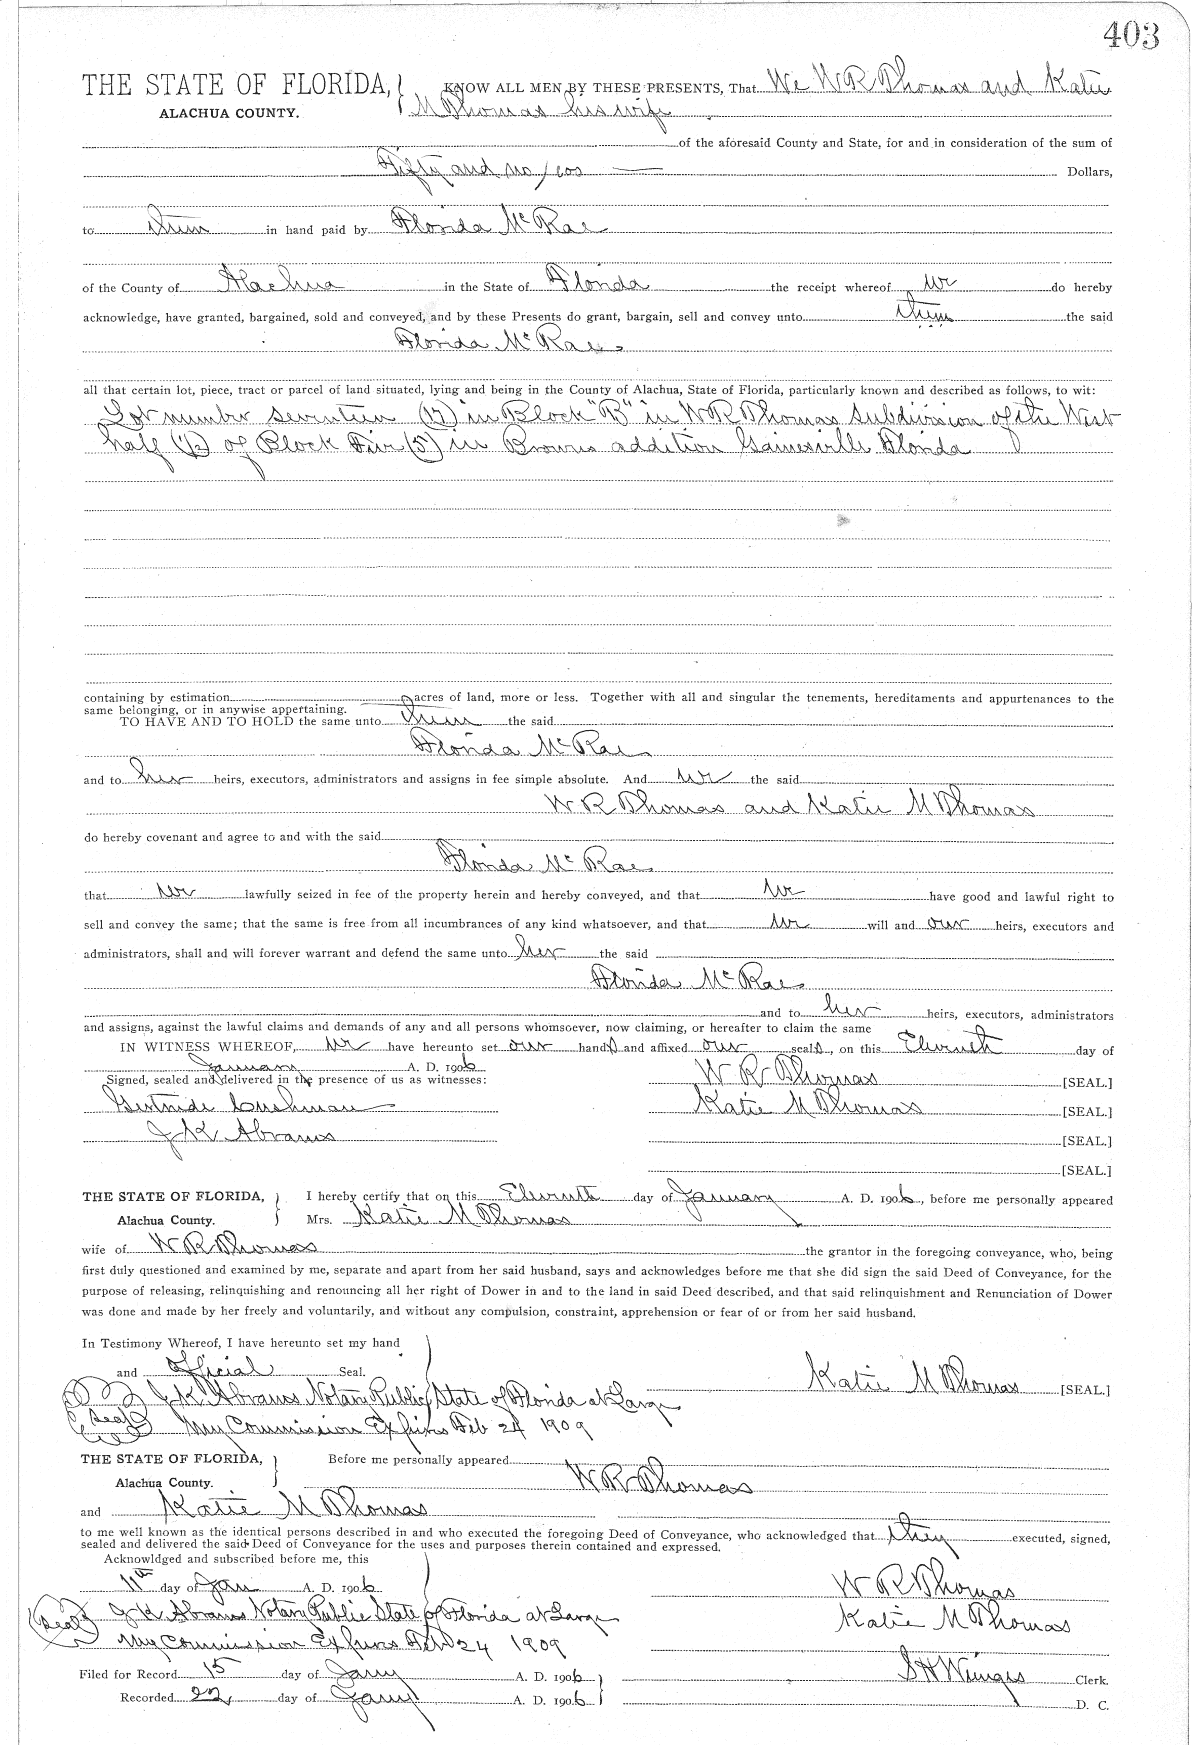 403
THE STATE OF FLORIDA, KNOW ALL MEN BY THESE PRESENTS, That We W R Thomas and Katie
ALACHUA COUNTY. M Thomas his wife
of the aforesaid County and State, for and in consideration of the sum of
Fifty and no/100 Dollars,
to them in hand paid by Florida McRae
of the County of Alachua in the State of Florida the receipt whereof we do hereby
acknowledge, have granted, bargained, sold and conveyed, and by these Presents do grant, bargain, sell and convey unto them the said
Florida McRae
all that certain lot, piece, tract or parcel of land situated, lying and being in the County of Alachua, State of Florida, particularly known and described as follows, to wit:
Lot number seventeen (17) in Block "B" in W R Thomas Subdivision of the West
half (½) of Block Five (5) in Browns addition Gainesville Florida
containing by estimation acres of land, more or less. Together with all and singular the tenements, hereditaments and appurtenances to the
same belonging, or in anywise appertaining.
TO HAVE AND TO HOLD the same unto them the said
Florida McRae
and to her heirs, executors, administrators and assigns in fee simple absolute. And we the said
W R Thomas and Katie M Thomas
do hereby covenant and agree to and with the said
Florida McRae
that we lawfully seized in fee of the property herein and hereby conveyed, and that we have good and lawful right to
sell and convey the same; that the same is free from all incumbrances of any kind whatsoever, and that we will and our heirs, executors and
administrators, shall and will forever warrant and defend the same unto her the said
Florida McRae
and to her heirs, executors, administrators
and assigns, against the lawful claims and demands of any and all persons whomsoever, now claiming, or hereafter to claim the same
IN WITNESS WHEREOF, we have hereunto set our hands and affixed our seals, on this Eleventh day of
January A. D. 1906 W R Thomas [SEAL.]
Signed, sealed and delivered in the presence of us as witnesses:
Gertrude Cushman Katie M Thomas [SEAL.]
J K Abrams [SEAL.]
[SEAL.]
THE STATE OF FLORIDA, I hereby certify that on this Eleventh day of January A. D. 1906, before me personally appeared
Alachua County. Mrs. Katie M Thomas
wife of W R Thomas the grantor in the foregoing conveyance, who, being
first duly questioned and examined by me, separate and apart from her said husband, says and acknowledges before me that she did sign the said Deed of Conveyance, for the
purpose of releasing, relinquishing and renouncing all her right of Dower in and to the land in said Deed described, and that said relinquishment and Renunciation of Dower
was done and made by her freely and voluntarily, and without any compulsion, constraint, apprehension or fear of or from her said husband.
In Testimony Whereof, I have hereunto set my hand
and official Seal. Katie M Thomas [SEAL.]
J K Abrams Notary Public State of Florida at Large
Seal My Commission Expires Feb 24 1909
THE STATE OF FLORIDA, Before me personally appeared W R Thomas
Alachua County.
and Katie M Thomas
to me well known as the identical persons described in and who executed the foregoing Deed of Conveyance, who acknowledged that they executed, signed,
sealed and delivered the said Deed of Conveyance for the uses and purposes therein contained and expressed.
Acknowldged and subscribed before me, this
11th day of Jan A. D. 1906 W R Thomas
Seal J K Abrams Notary Public State of Florida at Large Katie M Thomas
My Commission Expires Feb 24 1909
Filed for Record 15 day of Jany A. D. 1906 S H Wienges Clerk.
Recorded 22 day of Jany A. D. 1906 D. C.